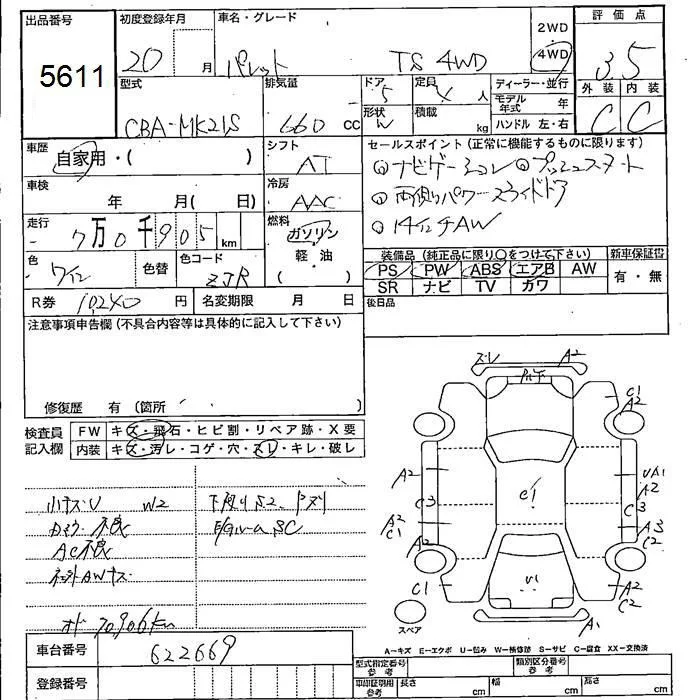 出品番号
5611
初度登録年月
20 月
車名・グレード
パレット TS 4WD
2WD
・
4WD
評価点
3.5
外装 内装
C C
型式
CBA-MK21S
排気量
660 cc
ドア
5
形状
定員
4 人
積載
kg
ディーラー・並行
モデル年式 年
ハンドル 左・右
車歴
自家用・( )
シフト
AT
車検
年 月( 日)
冷房
AAC
走行
- 7万0千905 km
燃料
ガソリン
軽・油
( )
色
ワイン
色替
色コード
ZJR
R券 10,240 円
名変期限 月 日
セールスポイント(正常に機能するものに限ります)
◎ナビゲーション ◎プッシュスタート
◎両側パワースライドドア
◎14インチAW
装備品(純正品に限り○をつけて下さい)
PS PW ABS エアB AW
SR ナビ TV カワ
新車保証書
有・無
後日品
注意事項申告欄(不具合内容等は具体的に記入して下さい)
修復歴 有(箇所 )
検査員
記入欄
FW キズ・飛石・ヒビ割・リペア跡・X要
内装 キズ・汚レ・コゲ・穴・スレ・キレ・破レ
小キズU W2
AC不良
オド 70906km
車台番号
622669
登録番号
ズレ A2
C1
A2
A2
C3
A2
C1
A2
C1
C1
UA1
A2
C3
A3
C2
A2
C2
U1
A1
スペア
A−キズ E−エクボ U−凹み W−補修跡 S−サビ C−腐食 XX−交換済
型式指定番号
参考
類別区分番号
参考
車印証明用
参考
長さ cm
幅 cm
高さ cm